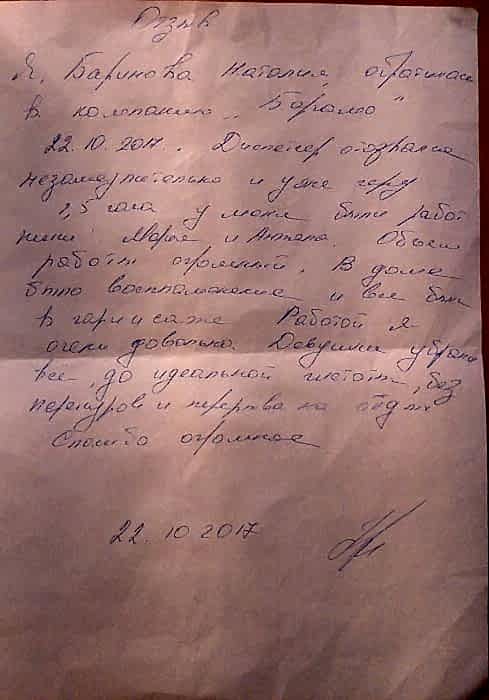 Отзыв
Я, Баринова Наталия, обратилась
в компанию „Бораммо"
22.10.2017. Диспетчер отозвался
незамедлительно и уже через
1,5 часа у меня были работ
ницы Марья и Антонина. Объем
работы огромный. В доме
было воспламенение и все было
в гари и саже Работой я
очень довольна. Девушки убрали
все, до идеальной чистоты, без
перекуров и перерыва на отдых
Спасибо огромное
22.10 2017